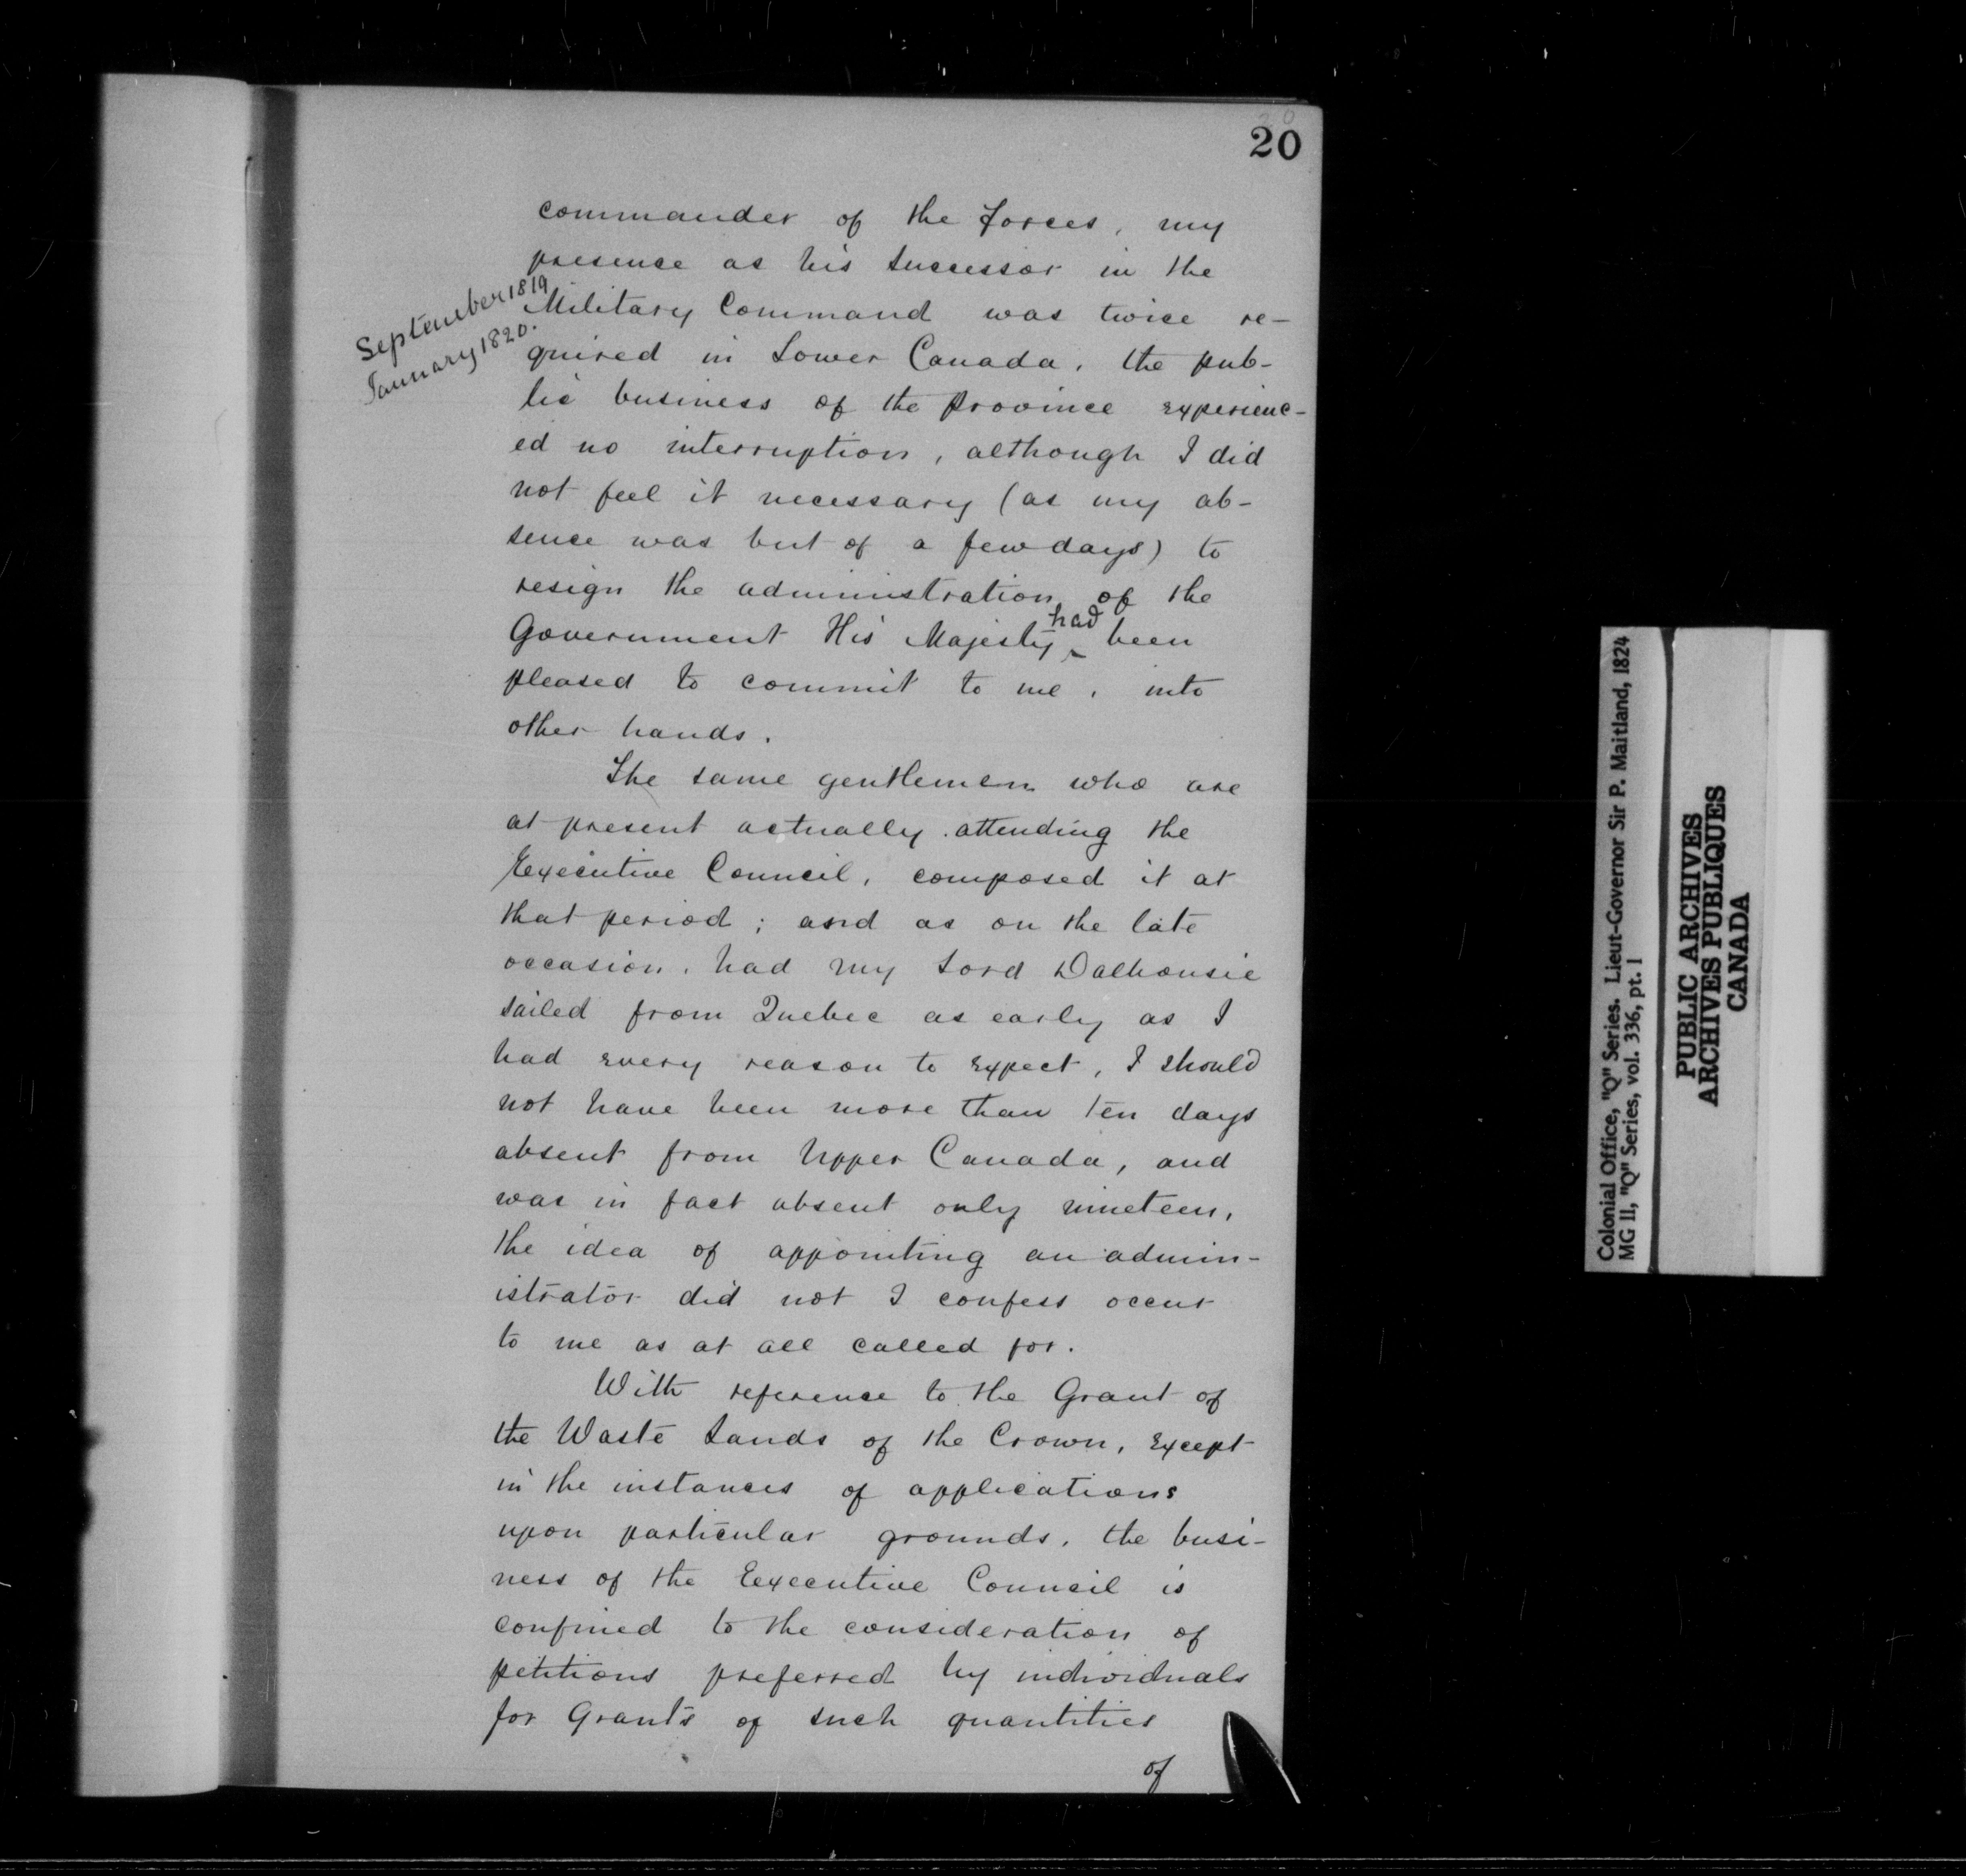 20
commander of the forces, my
presence as his successor in the
September 1819
January 1820.
Military Command was twice re-
quired in Lower Canada, the pub-
lic business of the Province experienc-
ed no interruption, although I did
not feel it necessary (as my ab-
sence was but of a few days) to
resign the administration of the
Government His Majesty had been
pleased to commit to me, into
other hands.
The same gentlemen who are
at present actually attending the
Executive Council, composed it at
that period; and as on the late
occasion, had my Lord Dalhousie
sailed from Quebec as early as I
had every reason to expect, I should
not have been more than ten days
absent from Upper Canada, and
was in fact absent only nineteen,
the idea of appointing an admin-
istrator did not I confess occur
to me as at all called for.
With reference to the Grant of
the Waste Lands of the Crown, except
in the instances of applications
upon particular grounds, the busi-
ness of the Executive Council is
confined to the consideration of
petitions preferred by individuals
for Grants of such quantities
of
Colonial Office, "Q" Series. Lieut-Governor Sir P. Maitland, 1824
MG 11, "Q" Series, vol. 336, pt. 1
PUBLIC ARCHIVES
ARCHIVES PUBLIQUES
CANADA